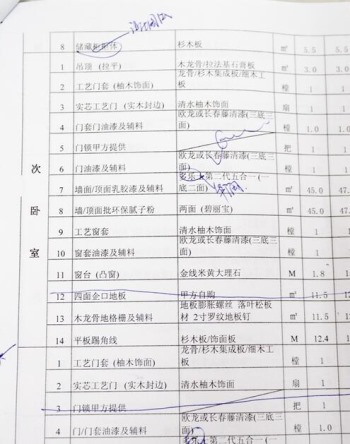 8 储藏柜柜体 杉木板 m² 5.5 5.5
1 吊顶（拉平） 木龙骨/拉法基石膏板 m² 3.0 3.0
2 工艺门套（柚木饰面） 龙骨/杉木集成板/细木工板 樘 1 1
3 实芯工艺门（实木封边） 清水柚木饰面 扇 1 1
4 门套门油漆及辅料 欧龙或长春藤清漆(三底三面) 樘 1.0 1.0
5 门锁甲方提供 把 1 1
6 门油漆及辅料 欧龙或长春藤清漆(三底三面) 樘 1 1
7 墙面/顶面乳胶漆及辅料 多乐士第二代五合一(一底二面) m² 45.0 47.
8 墙/顶面批环保腻子粉 两面（碧丽宝） m² 45.0 47.
次卧室
9 工艺窗套 清水柚木饰面 樘 1 1
10 窗套油漆及辅料 欧龙或长春藤清漆(三底三面) 樘 1 1
11 窗台（凸窗） 金线米黄大理石 M 1.8 1
12 四面企口地板 甲方自购 m² 11.5 12
13 木龙骨地格栅及辅料 地板膨胀螺丝 落叶松板材 2寸罗纹地板钉 m² 11.5 11.
14 平板踢角线 杉木板/饰面板 M 12.4 1
1 工艺门套（柚木饰面） 龙骨/杉木集成板/细木工板 樘 1 1
2 实芯工艺门（实木封边） 清水柚木饰面 扇 1
3 门锁甲方提供 把 1
4 门/门套油漆及辅料 欧龙或长春藤清漆(三底三面) 樘 1